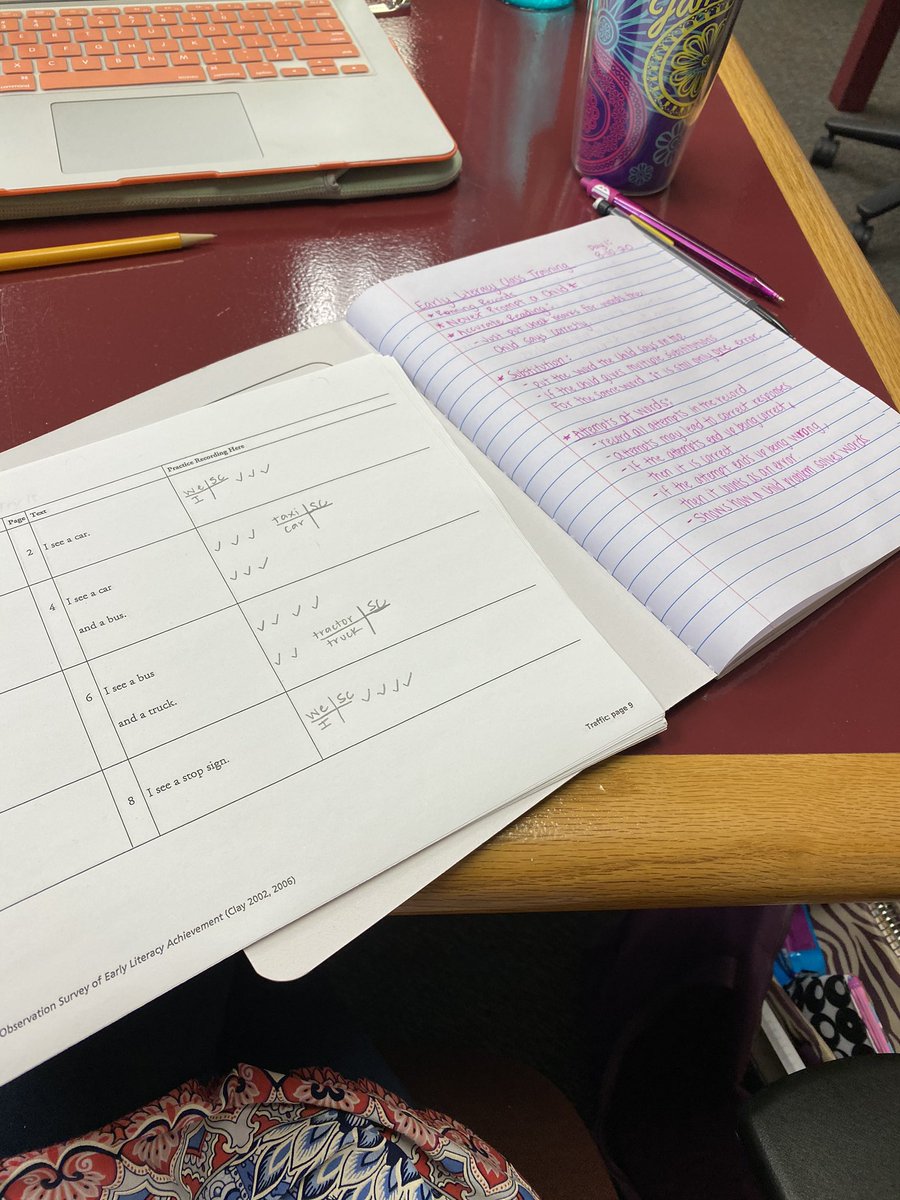 command
option
command
Day 1:
Early Literacy Class Training
* Running Records
* Never Prompt a Child *
* Accurate Reading:
- Just put check marks for words the
child says correctly
* Substitution:
- Put the word the child says on top
- if the child gives multiple substitutions
for the same word, it is still only one error
* Attempts at Words:
- record all attempts in the record
- attempts may lead to correct responses
- if the attempts end up being correct,
then it is correct
- if the attempt ends up being wrong,
then it counts as an error
- Shows how a child problem solves words
Page Text Practice Recording Here
2 I see a car. we | sc ✓ ✓ ✓
I
4 I see a car ✓ ✓ ✓ taxi | sc
car
and a bus. ✓ ✓ ✓
6 I see a bus ✓ ✓ ✓ ✓
and a truck. ✓ ✓ tractor | sc
truck
8 I see a stop sign. we | sc ✓ ✓ ✓ ✓
I
Traffic: page 9
Observation Survey of Early Literacy Achievement (Clay 2002, 2006)